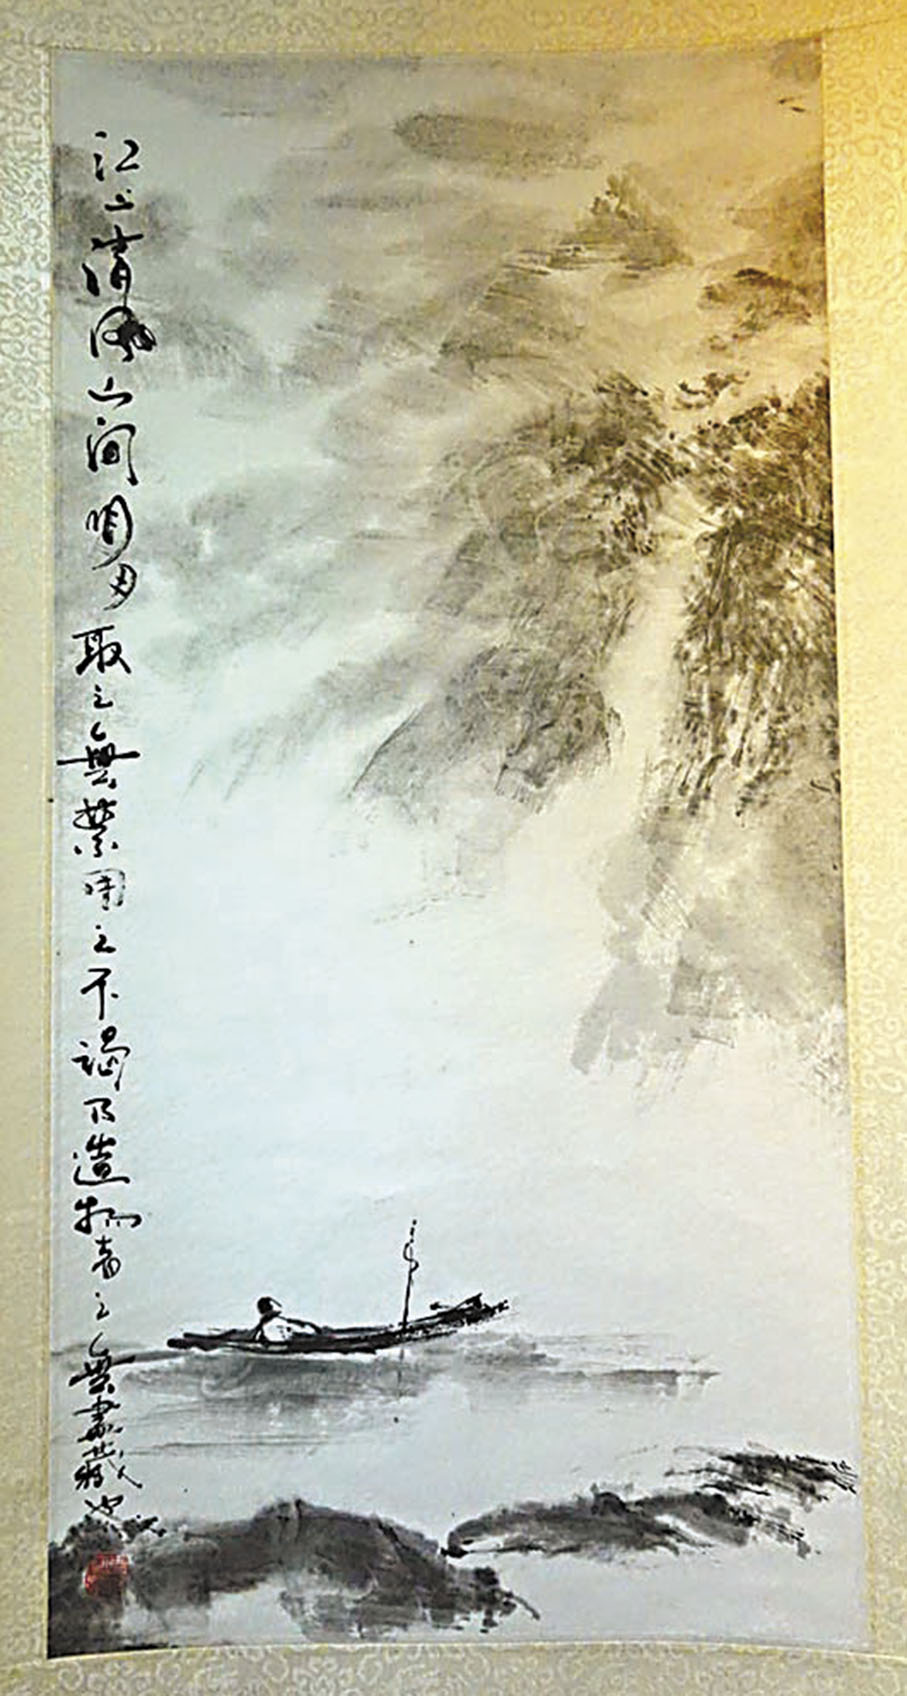 江上清風山間明月取之無禁用之不竭乃造物者之無盡藏也